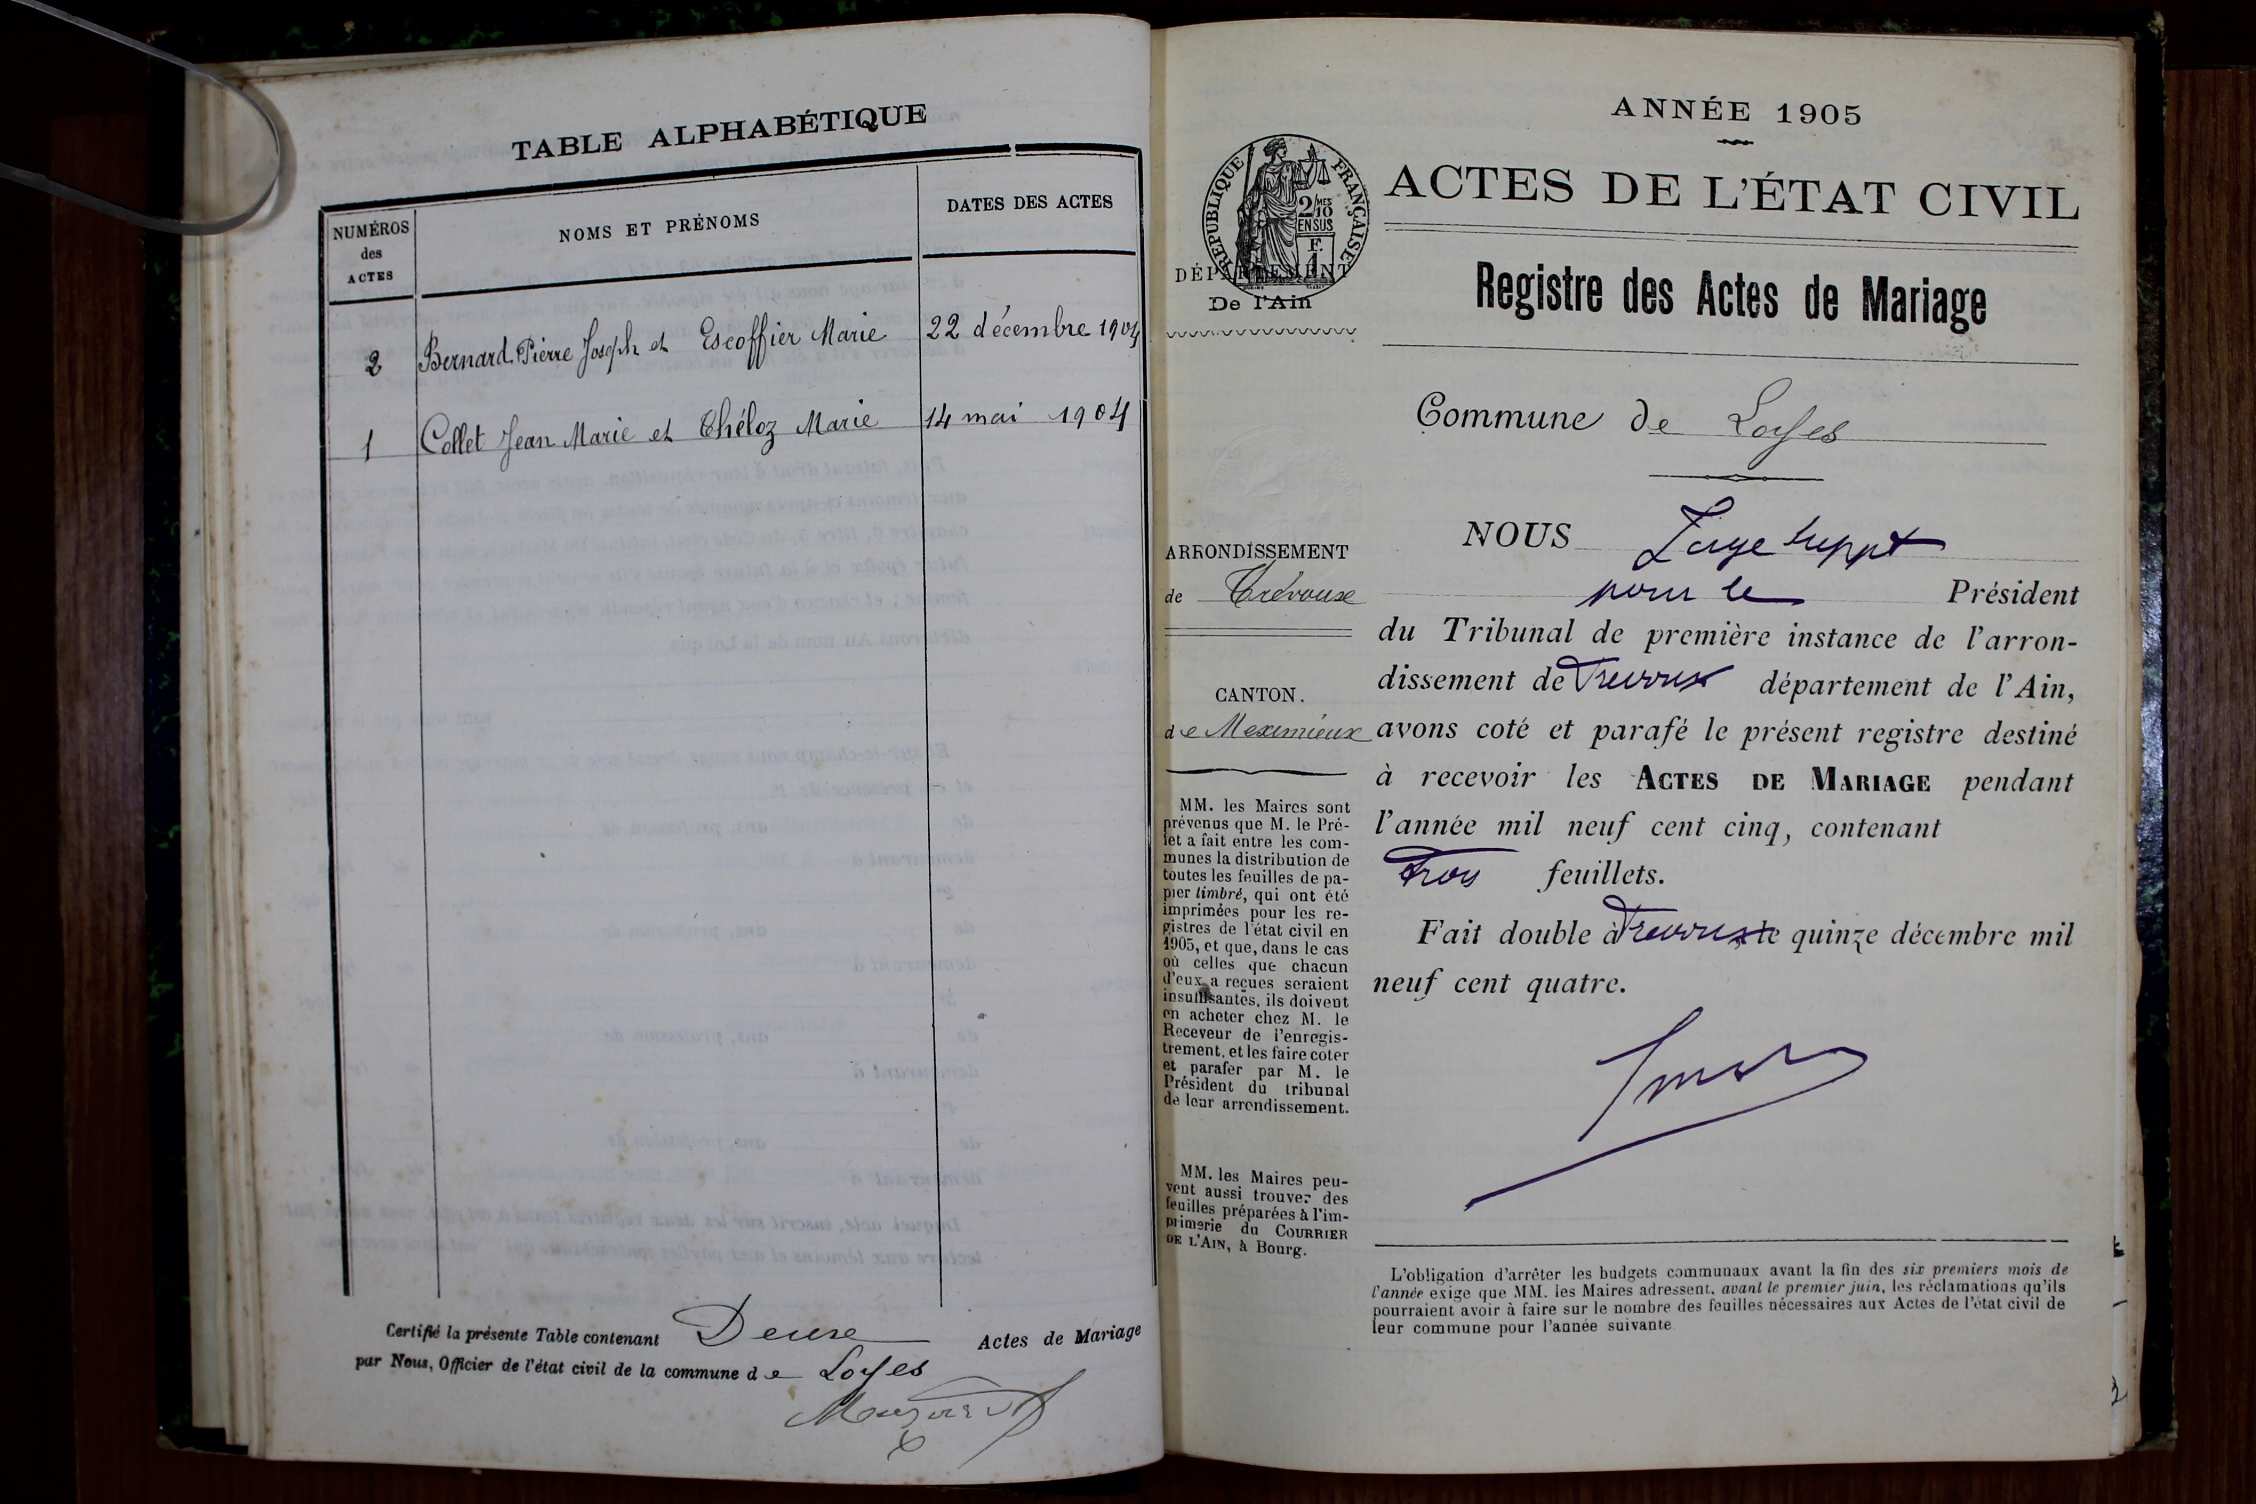 TABLE ALPHABÉTIQUE
NUMÉROS
des
ACTES
NOMS ET PRÉNOMS
DATES DES ACTES
2 Bernard Pierre Joseph et Escoffier Marie 22 décembre 1904
1 Collet Jean Marie et Théloz Marie 14 mai 1904
Certifié la présente Table contenant Deux Actes de Mariage
par Nous, Officier de l'état civil de la commune de Loyes
ANNÉE 1905
ACTES DE L'ÉTAT CIVIL
RÉPUBLIQUE FRANÇAISE
2/10 MES
EN SUS
F.
1
DÉPARTEMENT
De l'Ain
Registre des Actes de Mariage
Commune de Loyes
ARRONDISSEMENT
de Trévoux
CANTON.
de Meximieux
MM. les Maires sont
prévenus que M. le Pré-
fet a fait entre les com-
munes la distribution de
toutes les feuilles de pa-
pier timbré, qui ont été
imprimées pour les re-
gistres de l'état civil en
1905, et que, dans le cas
où celles que chacun
d'eux a reçues seraient
insuffisantes, ils doivent
en acheter chez M. le
Receveur de l'enregis-
trement, et les faire coter
et parafer par M. le
Président du tribunal
de leur arrondissement.
MM. les Maires peu-
vent aussi trouver des
feuilles préparées à l'im-
primerie du COURRIER
DE L'AIN, à Bourg.
NOUS Juge suppt
pour le Président
du Tribunal de première instance de l'arron-
dissement de Trevoux département de l'Ain,
avons coté et parafé le présent registre destiné
à recevoir les ACTES DE MARIAGE pendant
l'année mil neuf cent cinq, contenant
Trois feuillets.
Fait double à Trevoux le quinze décembre mil
neuf cent quatre.
L'obligation d'arrêter les budgets communaux avant la fin des six premiers mois de
l'année exige que MM. les Maires adressent, avant le premier juin, les réclamations qu'ils
pourraient avoir à faire sur le nombre des feuilles nécessaires aux Actes de l'état civil de
leur commune pour l'année suivante.